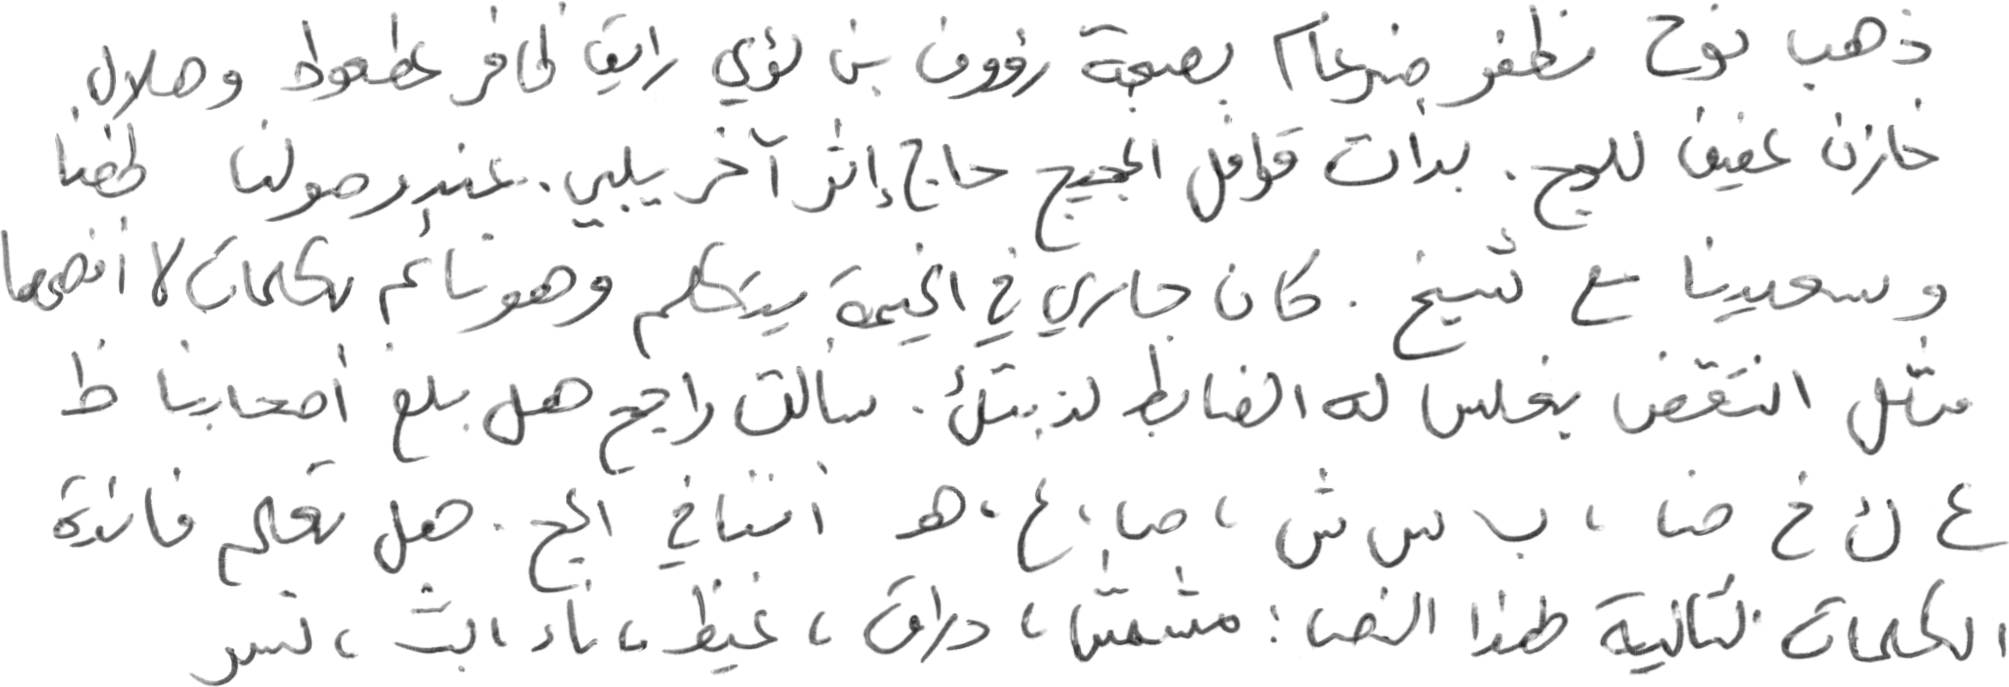 ذهب نوح مظفر ضرغام بصحبة رؤوف بن لؤي رايق ظافر عطعوط وهلال
خازن عفيف للحج . بدأت قوافل الحجيج حاج إثر آخر يلبي . عند وصولنا لحضنا
وسعدينا مع شيخ . كان جاري في الخيمة يتكلم وهو نائم بكلمات لا أفهمها
مثل النقض بغلس له الضابط لذ بتلئ . سألت راجح هل بلغ أصحابنا ظ
ع ن خ ض ، ب س ش ، ص ، غ ، هـ أثناء في الحج . هل تعلم فائدة
الكلمات التالية لهذا النص : مشمش ، دراق ، غيظ ، ناد ، ابث ، نسر